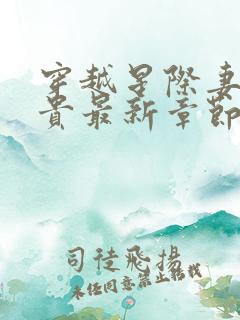 穿越星際妻
貴最新章節
司徒飛揚
未经同意禁止转载